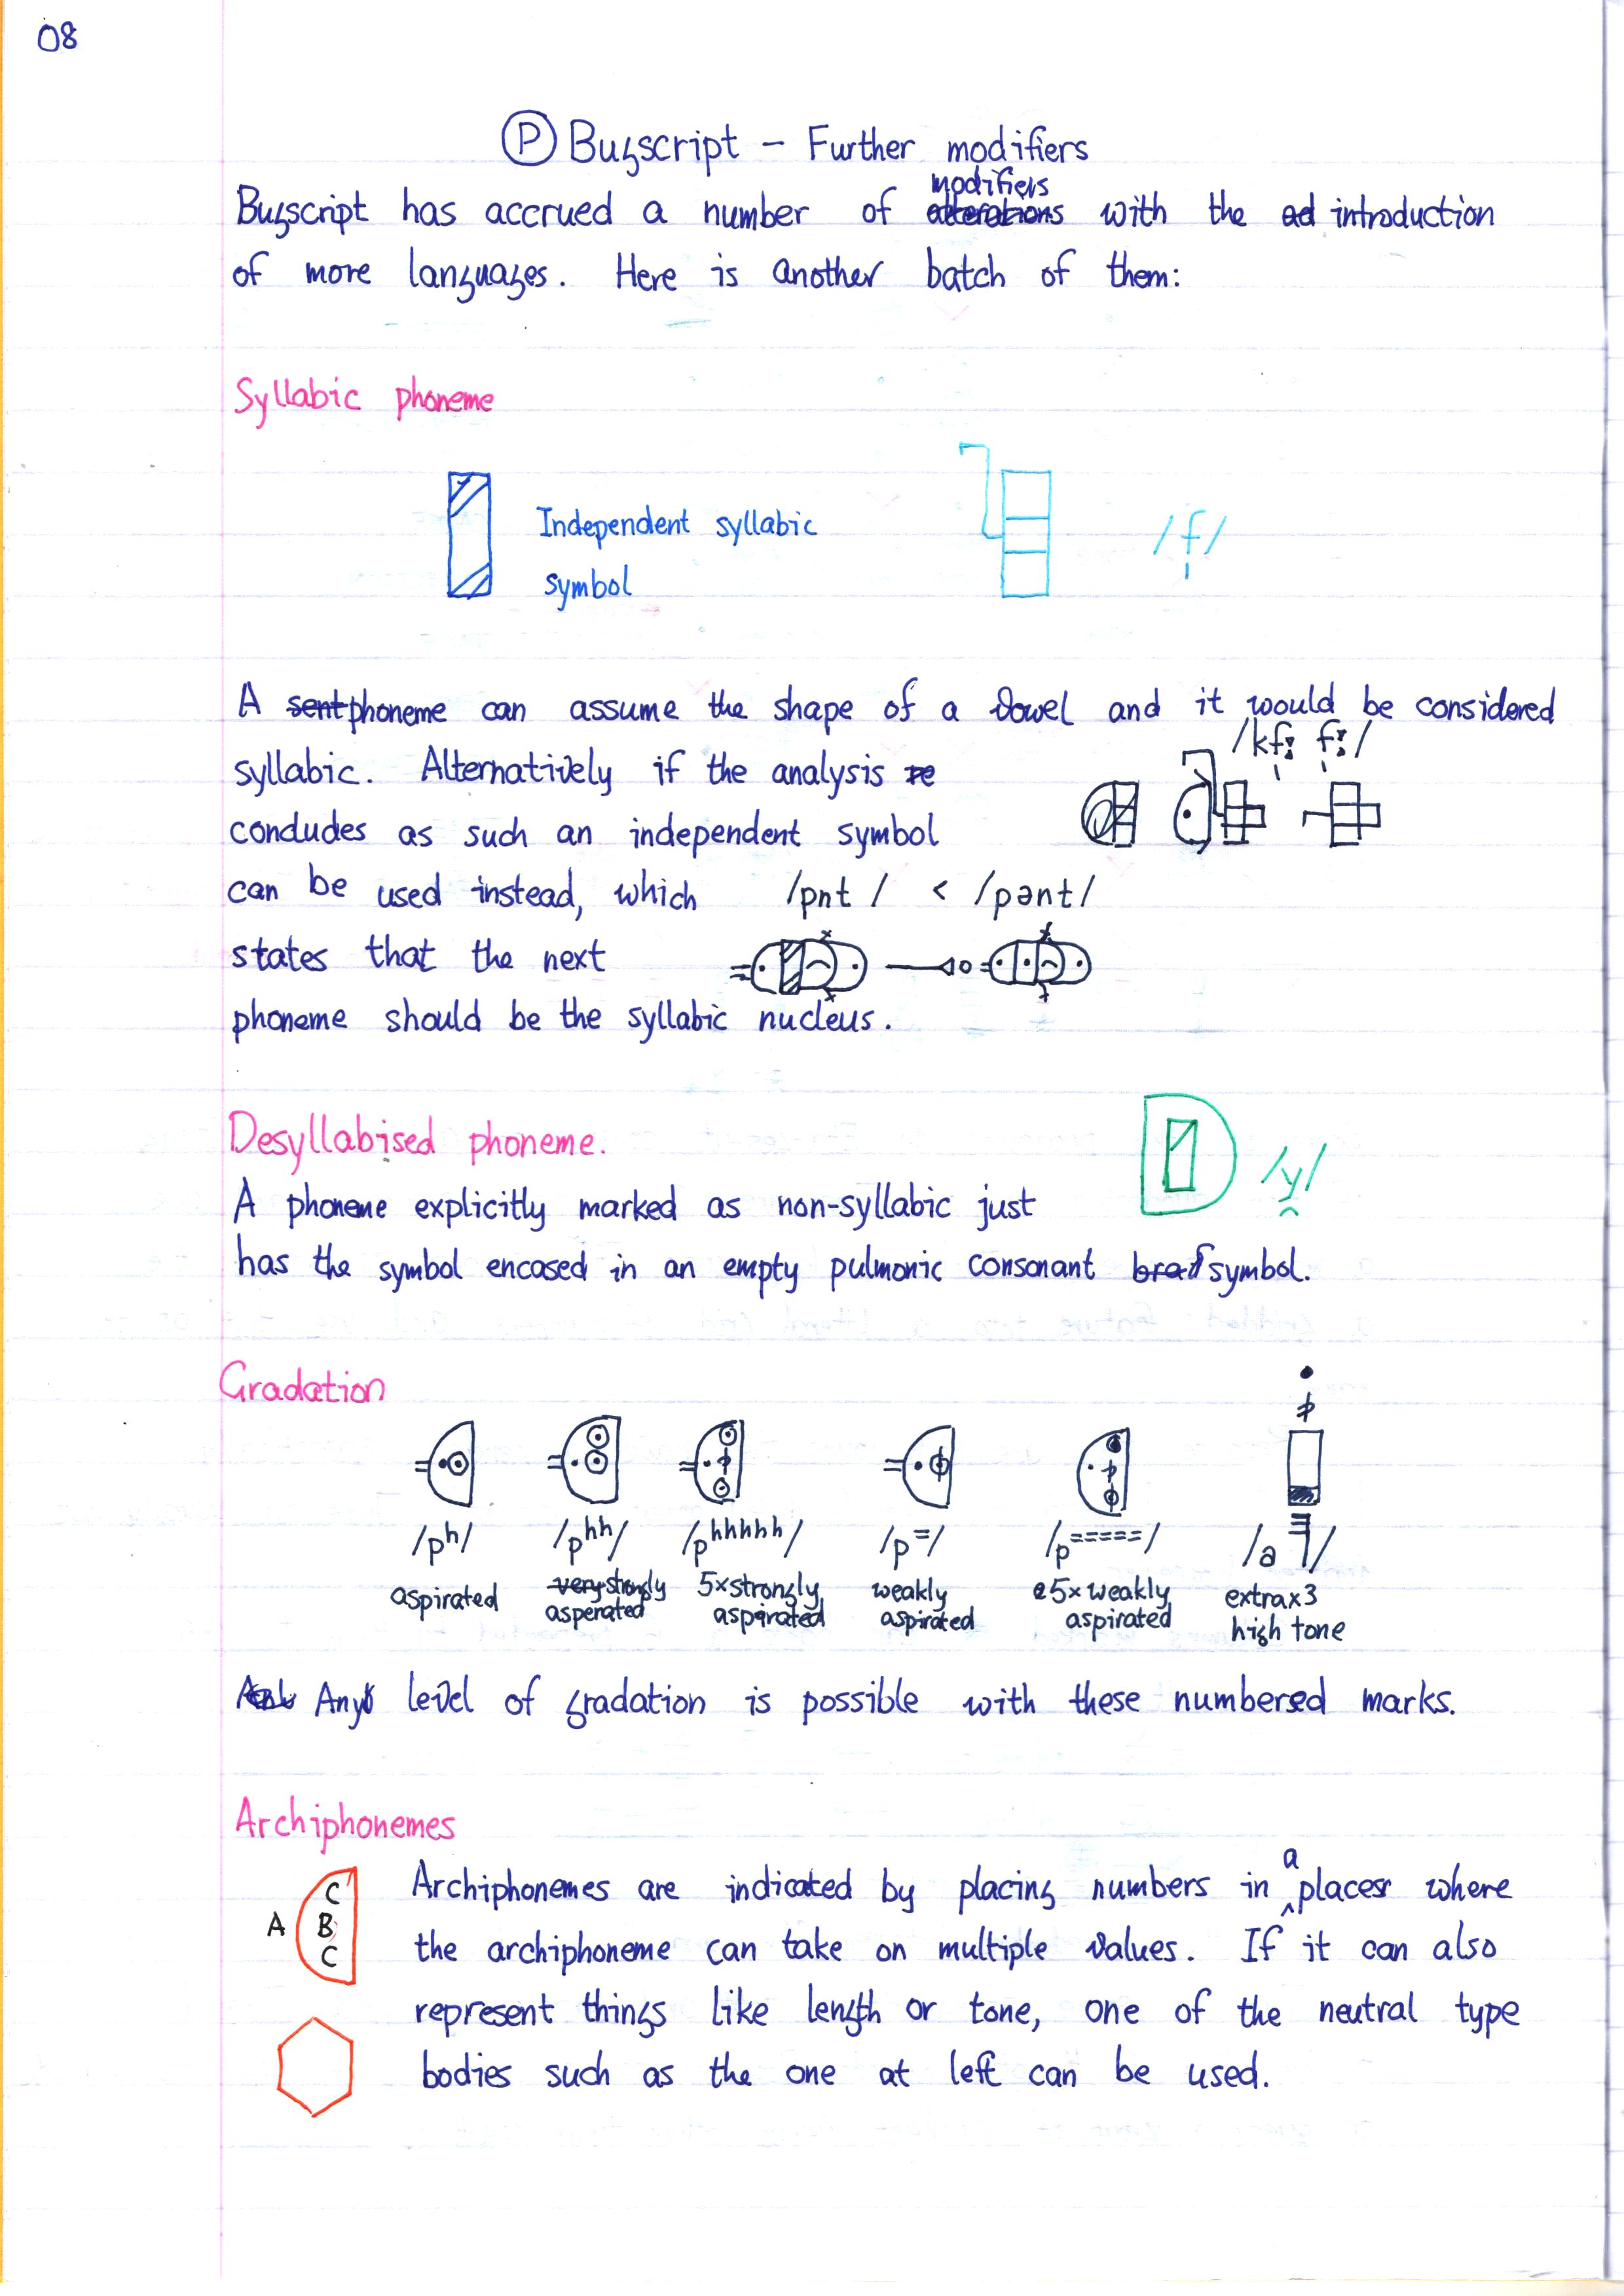 08
Ⓟ Bugscript – Further modifiers
modifiers
Bugscript has accrued a number of alterations with the ad introduction
of more languages. Here is another batch of them:
Syllabic phoneme
Independent syllabic
symbol
/f̩/
A sent phoneme can assume the shape of a vowel and it would be considered
/kf̩ː f̩ː/
syllabic. Alternatively if the analysis re
concludes as such an independent symbol
can be used instead, which /pnt / < /pənt/
states that the next
phoneme should be the syllabic nucleus.
Desyllabised phoneme.
/y̯/
A phoneme explicitly marked as non-syllabic just
has the symbol encased in an empty pulmonic consonant symbol.
Gradation
/pʰ/ /pʰʰ/ /pʰʰʰʰʰ/ /p⁼/ /p⁼⁼⁼⁼⁼/ /a ꜒/
aspirated very strongly asperated 5×strongly aspirated weakly aspirated 5× weakly aspirated extra×3 high tone
Any level of gradation is possible with these numbered marks.
Archiphonemes
C
A B
C
Archiphonemes are indicated by placing numbers in a places where
the archiphoneme can take on multiple values. If it can also
represent things like length or tone, one of the neutral type
bodies such as the one at left can be used.